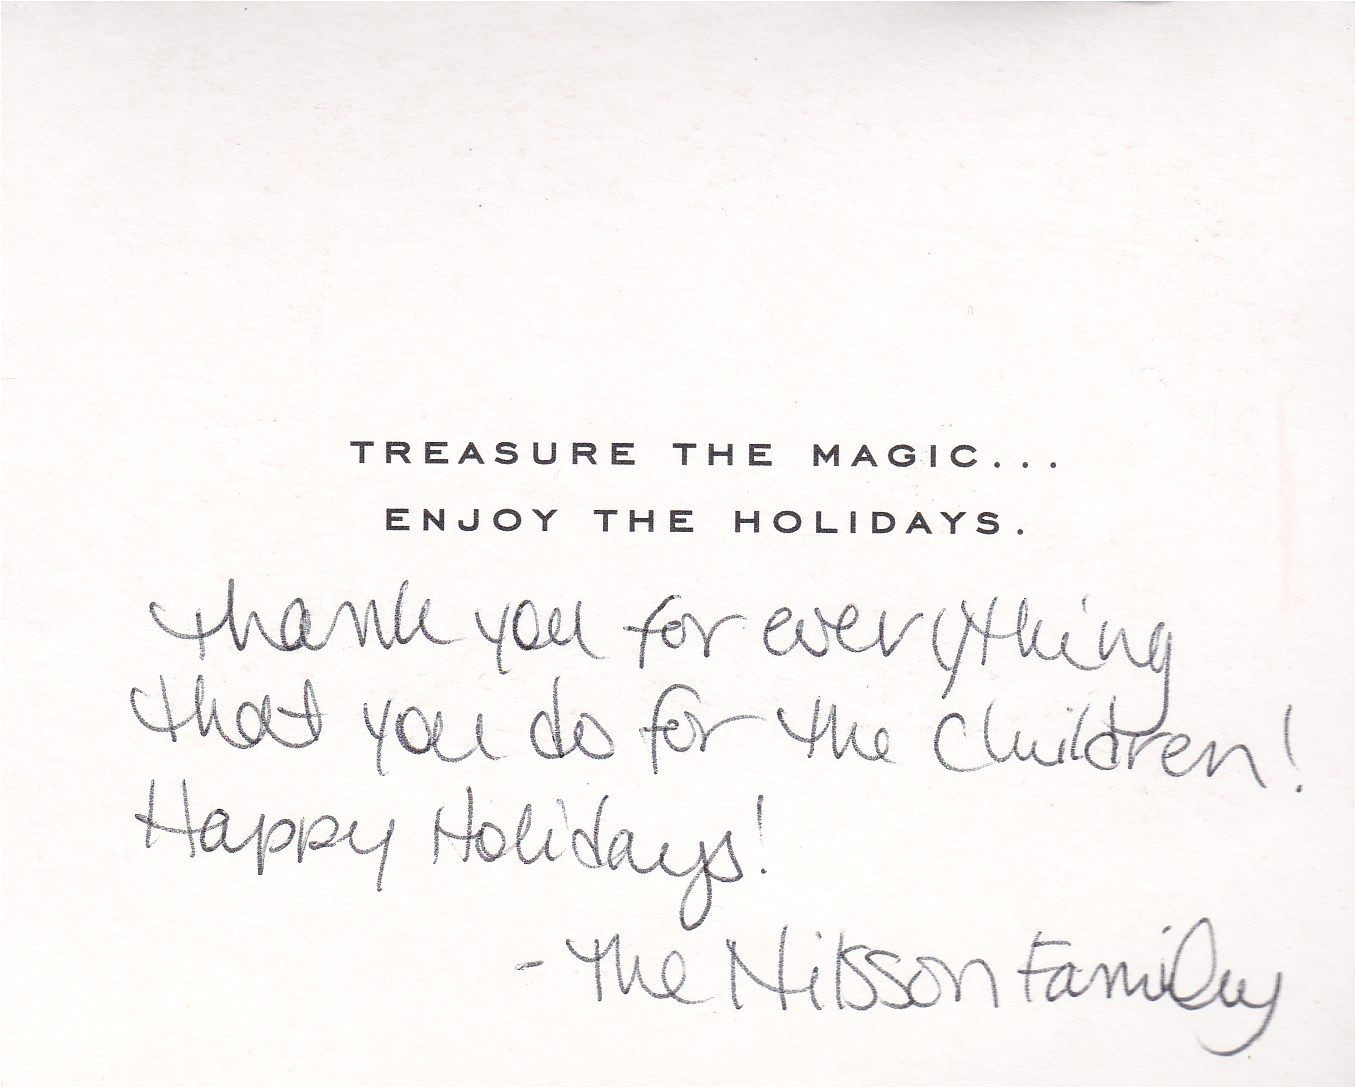 TREASURE THE MAGIC...
ENJOY THE HOLIDAYS.
Thank you for everything
that you do for the children!
Happy Holidays!
- The Nilsson Family